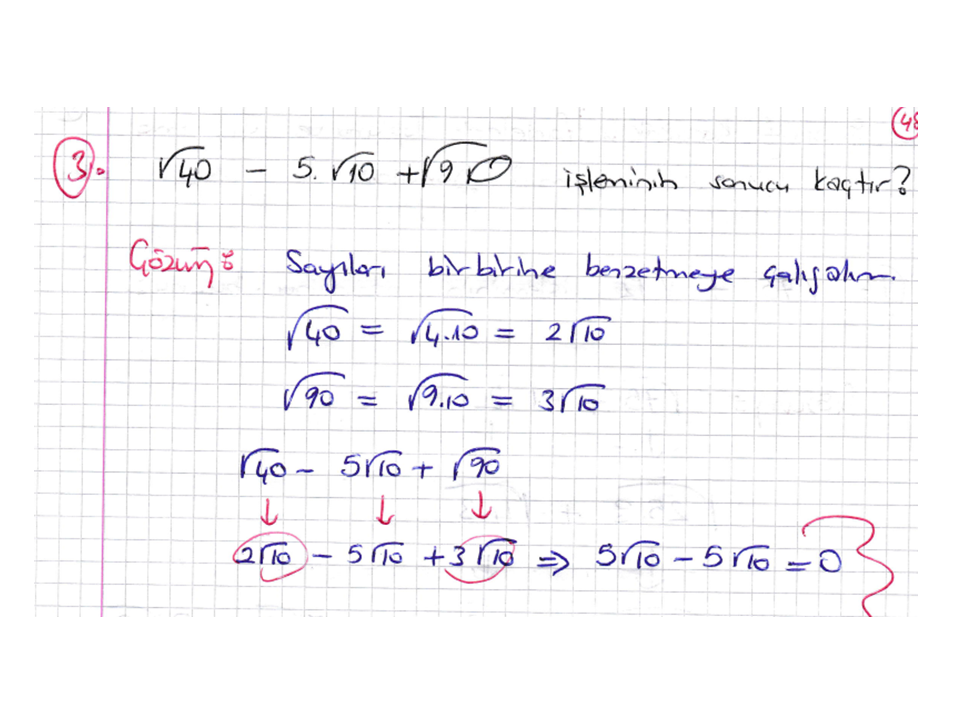 48
3. √40 - 5.√10 + √90 işleminin sonucu kaçtır?
Çözüm: Sayıları birbirine benzetmeye çalışalım.
√40 = √4.10 = 2√10
√90 = √9.10 = 3√10
√40 - 5√10 + √90
↓ ↓ ↓
2√10 - 5√10 + 3√10 ⇒ 5√10 - 5√10 = 0